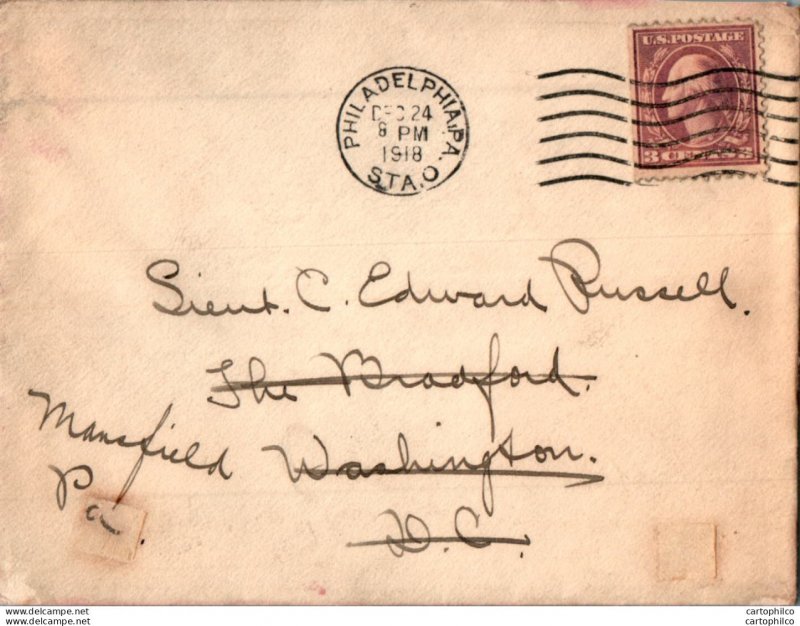 U.S. POSTAGE
3 CENTS
PHILADELPHIA, PA.
DEC 24
8 PM
1918
STA. O
Lieut. C. Edward Russell.
The Bradford.
Washington.
D.C.
Mansfield
Pa.
www.hippostamp.com
www.hippostamp.com
cartophilco
cartophilco